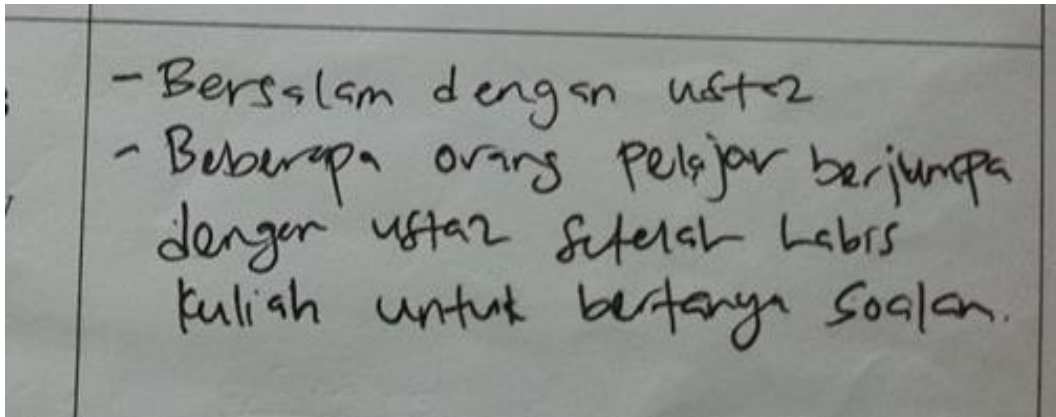 - Bersalam dengan ustaz
- Beberapa orang pelajar berjumpa
dengan ustaz setelah habis
kuliah untuk bertanya soalan.